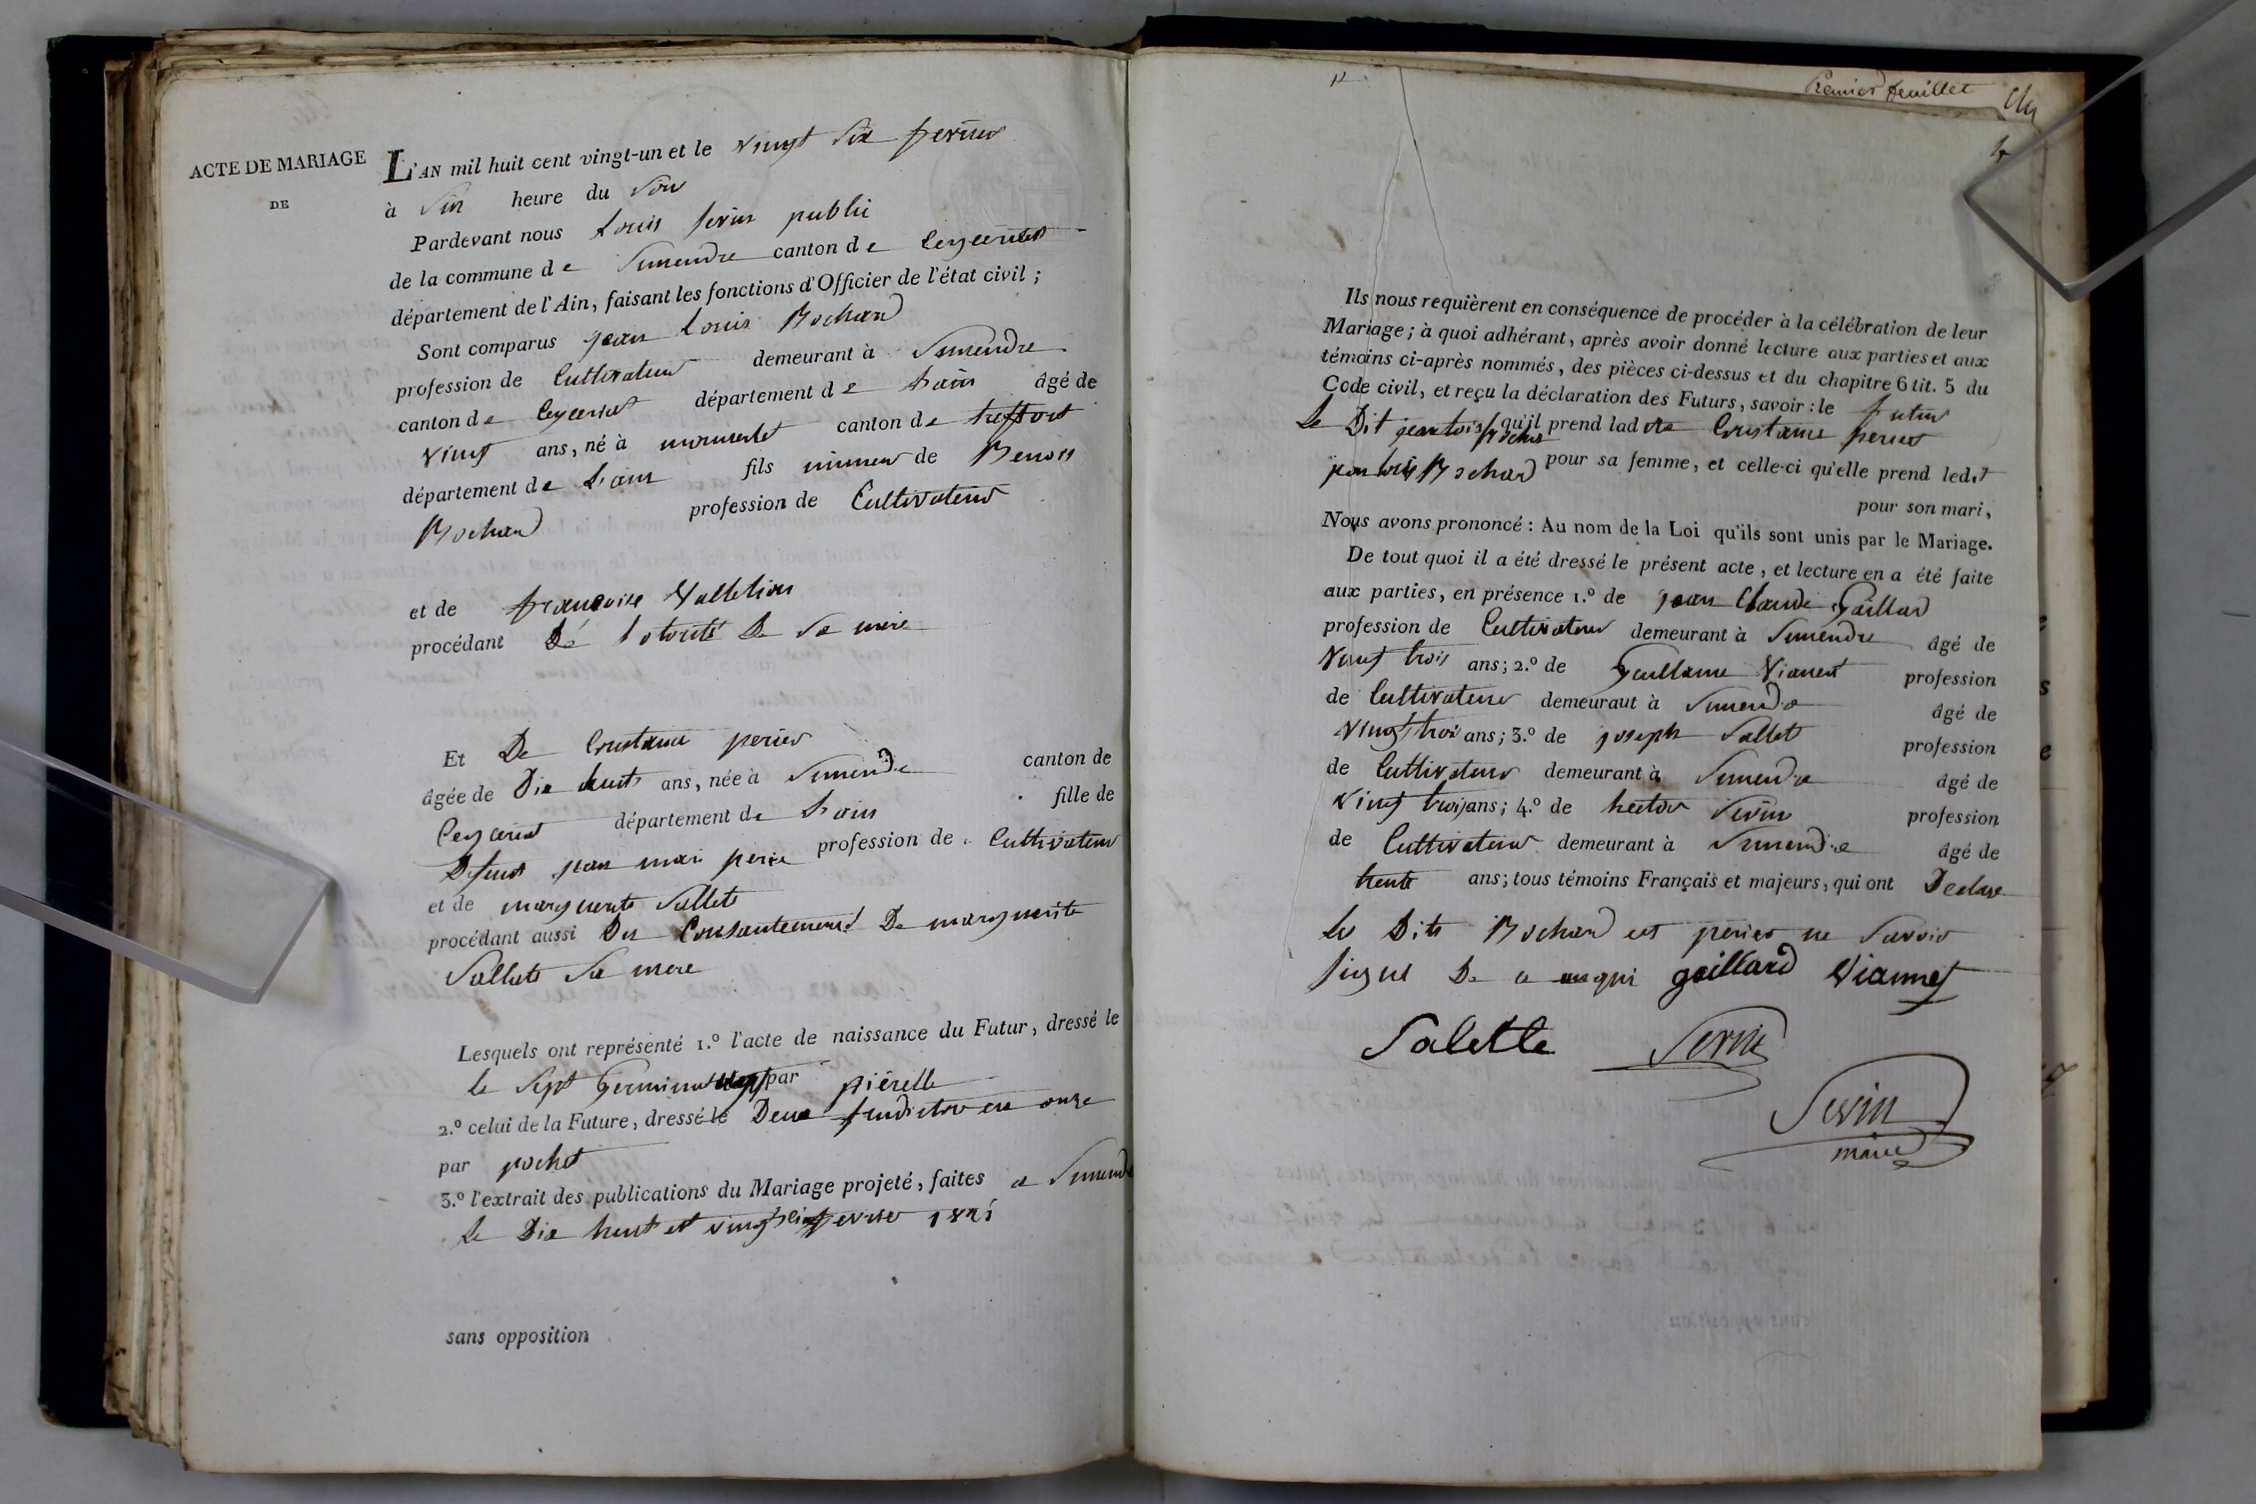 ACTE DE MARIAGE
DE
L'AN mil huit cent vingt-un et le vingt six fevrier
à six heure du soir
Pardevant nous Louis Servin public
de la commune de Simendre canton de Ceyzeriat
département de l'Ain, faisant les fonctions d'Officier de l'état civil ;
Sont comparus jean Louis Bochard
profession de Cultivateur demeurant à Simendre
canton de Ceyzeriat département de Lain âgé de
vingt ans, né à canton de treffort
département de Lain fils mineur de Benoit
Bochard profession de Cultivateur
et de francoise
procédant De lotorité De sa mere
Et De Constance perier
âgée de Dix huit ans, née à Simendre canton de
Ceyzeriat département de Lain fille de
Defunt jean mari perier profession de Cultivateur
et de marguerite Sallets
procédant aussi Du Consantement De marguerite
Sallets sa mere
Lesquels ont représenté 1.º l'acte de naissance du Futur, dressé le
le sept Germinal par pierelle
2.º celui de la Future, dressé le Deux fructidor en onze
par pochet
3.º l'extrait des publications du Mariage projeté, faites a Simendre
Le Dix huit et vingt cinq fevrier 1821
sans opposition
Premier feuillet
Ils nous requièrent en conséquence de procéder à la célébration de leur
Mariage ; à quoi adhérant, après avoir donné lecture aux parties et aux
témoins ci-après nommés, des pièces ci-dessus et du chapitre 6 tit. 5 du
Code civil, et reçu la déclaration des Futurs, savoir : le futur
Le Dit jean Louis Bochard qu'il prend ladite Constance perier
pour sa femme, et celle-ci qu'elle prend ledit
jean Louis Bochard
pour son mari,
Nous avons prononcé : Au nom de la Loi qu'ils sont unis par le Mariage.
De tout quoi il a été dressé le présent acte, et lecture en a été faite
aux parties, en présence 1.º de jean Claude Gaillard
profession de Cultivateur demeurant à Simendre âgé de
vingt trois ans ; 2.º de Guillaume Vianet profession
de Cultivateur demeuraut à Simendre âgé de
vingt troi ans ; 3.º de joseph Sallet profession
de Cultivateur demeurant à Simendre âgé de
vingt trois ans ; 4.º de hector Servin profession
de Cultivateur demeurant à Simendre âgé de
trente ans ; tous témoins Français et majeurs, qui ont Declare
les Dits Bochard et perier ne savoir
signe De a enqui gaillard Viannet
Salette Servin
Servin
maire